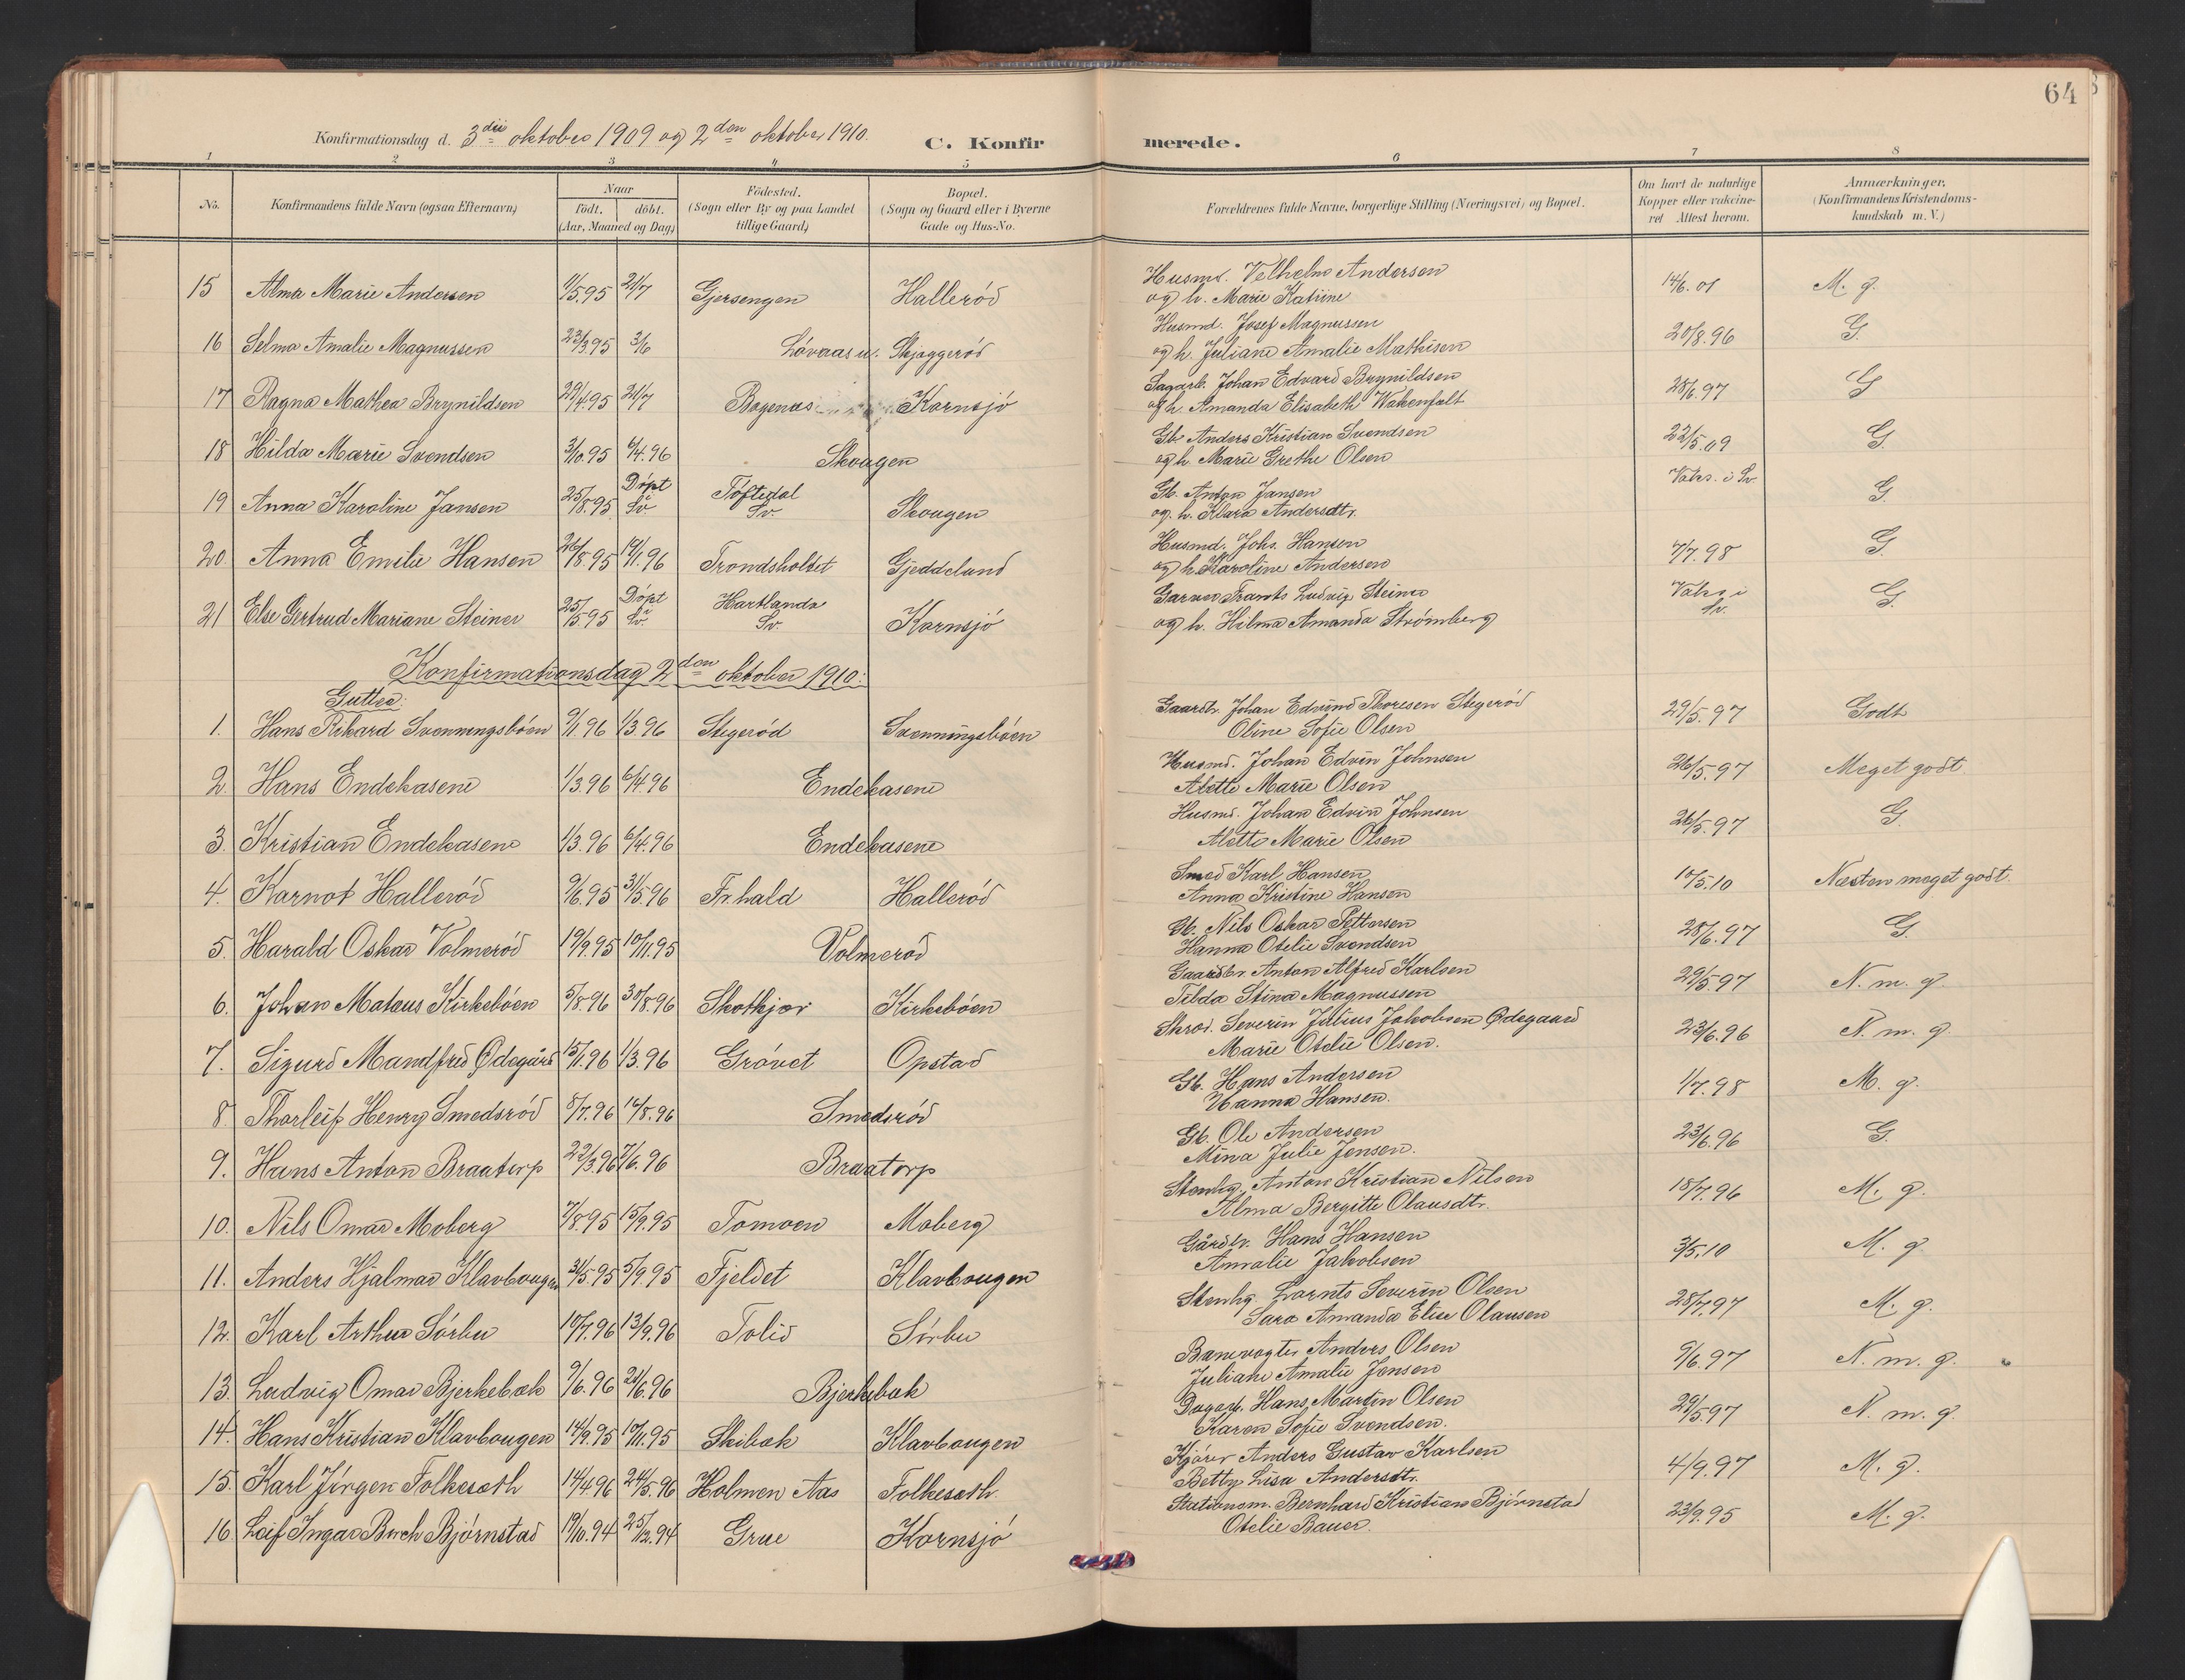 64
Konfirmationsdag d. 3die oktober 1909 og 2den oktober 1910. C. Konfirmerede.
1 2 3 4 5 6 7 8
No. Konfirmandens fulde Navn (ogsaa Efternavn) Naar født. døbt. (Aar, Maaned og Dag) Födested. (Sogn eller By og paa Landet tillige Gaard) Bopæl. (Sogn og Gaard eller i Byerne Gade og Hus-No. Forældrenes fulde Navne, borgerlige Stilling (Næringsvei) og Bopæl. Om havt de naturlige Kopper eller vakcineret Attest herom. Anmærkninger, (Konfirmandens Kristendomskundskab m. V.)
15 Alma Marie Andersen 11/5.95 21/7 Gjersengen Hallerød Husmd. Velhelm Andersen 14/6.01 M. g.
og h. Marie Katrine
16 Selma Amalie Magnussen 23/3.95 3/6 Løvaas u. Skjæggerød Husmd. Josef Magnussen 20/8.96 G.
og h. Juliane Amalie Mathisen
17 Ragna Mathea Brynildsen 29/4.95 21/7 Bøgenæs Kornsjø Sagarb. Johan Edvard Brynildsen 28/6.97 G
og h. Amanda Elisabeth Wakenfelt
18 Hilda Marie Svendsen 3/10.95 6/4.96 Skougen Gb. Anders Kristian Svendsen 22/5.09 G.
og h. Marie Grethe Olsen
19 Anna Karoline Jansen 25/8.95 Døpt i Sv. Töftedal Sv. Skougen Gb. Anton Jansen Vaks. i Sv. G.
og h. Klara Andersdtr.
20 Anna Emilie Hansen 26/8.95 19/1.96 Trondsholdet Gjeddelund Husmd. Johs. Hansen 7/7.98 G.
og h. Karoline Andersen
21 Else Gertrud Mariane Steiner 25/5.95 Døpt i Sv. Hartlanda Sv. Kornsjø Garver Frants Ludvig Steiner Vaks i Sv. G.
og h. Hilma Amanda Strømberg
Konfirmationsdag 2den oktober 1910:
Gutter:
1. Hans Rikard Svenningsbøen 9/1.96 1/3.96 Stegerød Svenningsbøen Gaardbr. Johan Edvind Thoresen Stegerød 29/5.97 Godt
Oline Sofie Olsen
2. Hans Endekasene 1/3.96 6/4.96 Endekasene Husmd. Johan Edvin Johnsen 26/5.97 Meget godt
Alette Marie Olsen
3. Kristian Endekasene 1/3.96 6/4.96 Endekasene Husmd. Johan Edvin Johnsen 26/5.97 G.
Alette Marie Olsen
4. Karnot Hallerød 9/6.95 31/5.96 Fr.hald Hallerød Smed Karl Hansen 10/5.10 Næsten meget godt.
Anna Kristine Hansen
5. Harald Oskar Volmerød 19/9.95 10/11.95 Volmerød Gb. Nils Oskar Pettersen 28/6.97 G.
Hanna Otelie Svendsen
6. Johan Mateus Kirkebøen 5/8.96 30/8.96 Skotkjær Kirkebøen Gaardbr. Anton Alfred Karlsen 29/5.97 N. m. g.
Tilda Stina Magnussen
7. Sigurd Mandfred Ødegård 15/1.96 1/3.96 Grøvet Opstad Skræd. Severin Julius Jakobsen Ødegaard 23/6.96 N. m. g.
Marie Otelie Olsen.
8. Thorleif Henry Smedsrød 8/7.96 16/8.96 Smedsrød Gb. Hans Andersen 1/7.98 M. g.
Hanna Hansen.
9. Hans Anton Braatorp 22/3.96 7/6.96 Braatorp Gb. Ole Andersen 23/6.96 G.
Mina Julie Jensen.
10. Nils Omar Moberg 7/8.95 15/9.95 Tomoen Moberg Stenhg. Anton Kristian Nilsen 18/7.96 M. g.
Alma Bergitte Olausdtr.
11. Anders Hjalmar Klavbougen 31/5.95 5/9.95 Fjeldet Klavbougen Gårdbr. Hans Hansen 3/5.10 M. g.
Amalie Jakobsen
12. Karl Arthur Sørbu 10/7.96 13/9.96 Tolid Sørbu Stenhg. Lornts Severin Olsen 28/7.97 M. g.
Sara Amanda Elise Olausen
13. Ludvig Omar Bjerkebæk 9/6.96 21/6.96 Bjerkebæk Banevogter Anders Olsen 9/6.97 N. m. g.
Juliane Amalie Jensen
14. Hans Kristian Klavbougen 14/9.95 10/11.95 Skibæk Klavbougen Dagarb. Hans Martin Olsen 29/5.97 N. m. g.
Karen Sofie Svendsen.
15. Karl Jørgen Folkesæth 14/4.96 24/5.96 Holmen Aas Folkesæth Kjører Anders Gustav Karlsen 4/9.97 M. g.
Betty Lisa Andersdtr.
16. Leif Ingar Buch Bjørnstad 19/10.94 25/12.94 Grue Kornsjø Stationsm. Bernhard Kristian Bjørnstad 23/9.95 M. g.
Otelie Bauer.